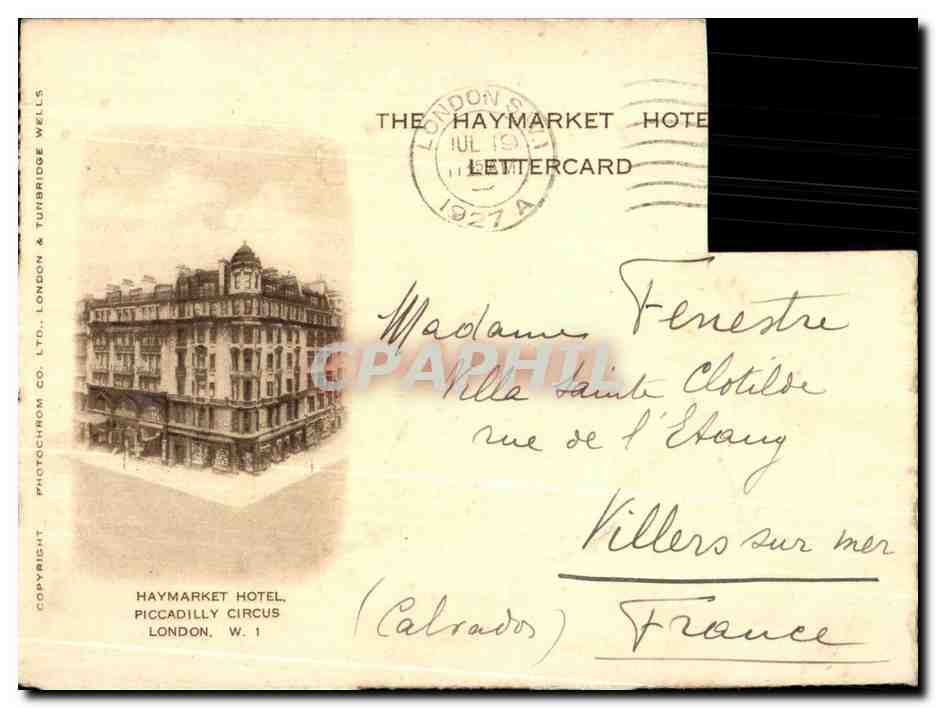 COPYRIGHT PHOTOCHROM CO. LTD., LONDON & TUNBRIDGE WELLS
THE HAYMARKET HOTE
LETTERCARD
LONDON S.W.1
JUL 19
1927 A
Madame Fenestre
Villa Sainte Clotilde
rue de l'Etang
Villers sur mer
(Calvados) France
HAYMARKET HOTEL,
PICCADILLY CIRCUS
LONDON, W. 1
CPAPHIL